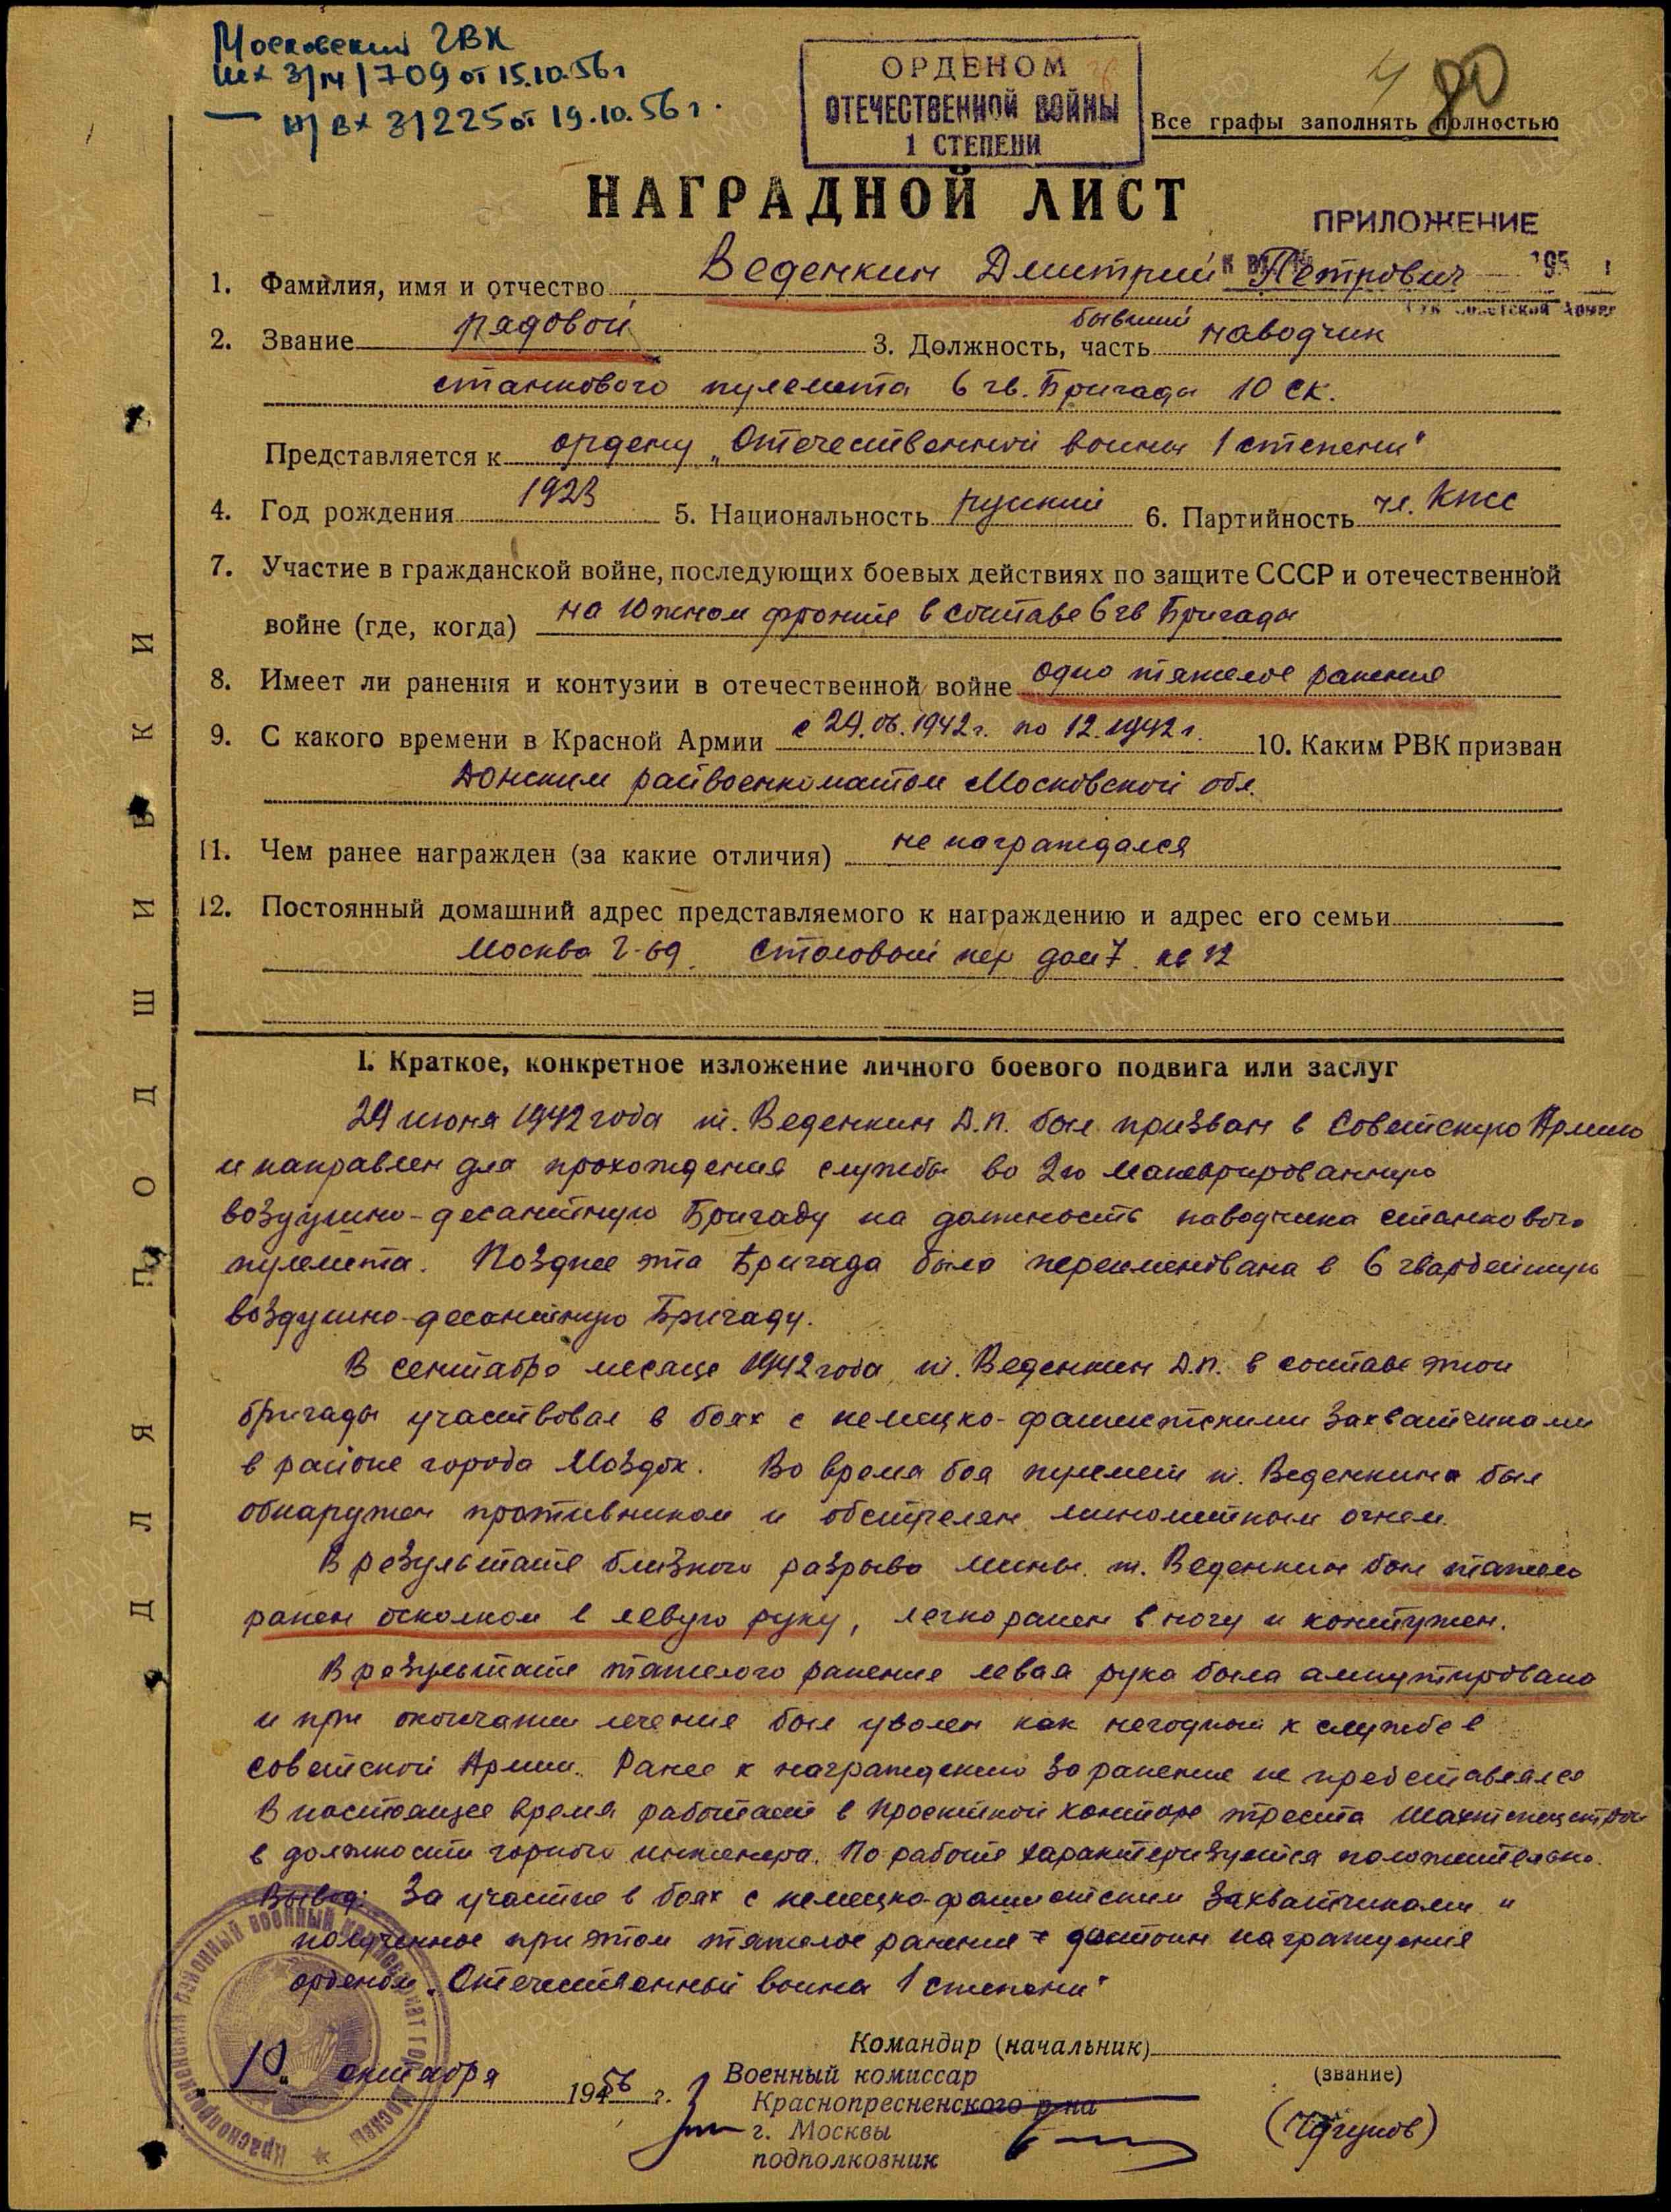 Московский ГВК
Исх 3/14/709 от 15.10.56г
Вх 3/225 от 19.10.56г.
ОРДЕНОМ
ОТЕЧЕСТВЕННОЙ ВОЙНЫ
1 СТЕПЕНИ
80
Все графы заполнять полностью
НАГРАДНОЙ ЛИСТ
ПРИЛОЖЕНИЕ
195 г
Советской Армии
1. Фамилия, имя и отчество Веденкин Дмитрий Петрович
2. Звание рядовой 3. Должность, часть бывший наводчик
станкового пулемета 6 гв. Бригады 10 ск.
Представляется к ордену „Отечественной войны 1 степени"
4. Год рождения 1923 5. Национальность русский 6. Партийность чл. КПСС
7. Участие в гражданской войне, последующих боевых действиях по защите СССР и отечественной
войне (где, когда) на Южном фронте в составе 6 гв Бригады
8. Имеет ли ранения и контузии в отечественной войне одно тяжелое ранение
9. С какого времени в Красной Армии с 29.06.1942г. по 12.1942г. 10. Каким РВК призван
Донским райвоенкоматом Московской обл.
11. Чем ранее награжден (за какие отличия) не награждался
12. Постоянный домашний адрес представляемого к награждению и адрес его семьи
Москва Г-69. Столовый пер дом 7. кв 12
ДЛЯ ПОДШИВКИ
I. Краткое, конкретное изложение личного боевого подвига или заслуг
29 июня 1942 года т. Веденкин Д.П. был призван в Советскую Армию
и направлен для прохождения службы во 2ю маневрированную
воздушно-десантную Бригаду на должность наводчика станкового
пулемета. Позднее эта Бригада была переименована в 6 гвардейскую
воздушно-десантную Бригаду.
В сентябре месяце 1942 года т. Веденкин Д.П. в составе этой
бригады участвовал в боях с немецко-фашистскими захватчиками
в районе города Моздок. Во время боя пулемет т. Веденкина был
обнаружен противником и обстрелян минометным огнем.
В результате близкого разрыва мины т. Веденкин был тяжело
ранен осколком в левую руку, легко ранен в ногу и контужен.
В результате тяжелого ранения левая рука была ампутирована
и при окончании лечения был уволен как негодный к службе в
Советской Армии. Ранее к награждению за ранение не представлялся
В настоящее время работает в Проектной конторе треста Шахтспецстрой
в должности горного инженера. По работе характеризуется положительно.
Вывод: За участие в боях с немецко-фашистским захватчиками и
полученное при этом тяжелое ранение - достоин награждения
орденом „Отечественный война 1 степени"
Командир (начальник)
(звание)
„10" октября 1956 г.
Военный комиссар
Краснопресненского р-на
г. Москвы
подполковник